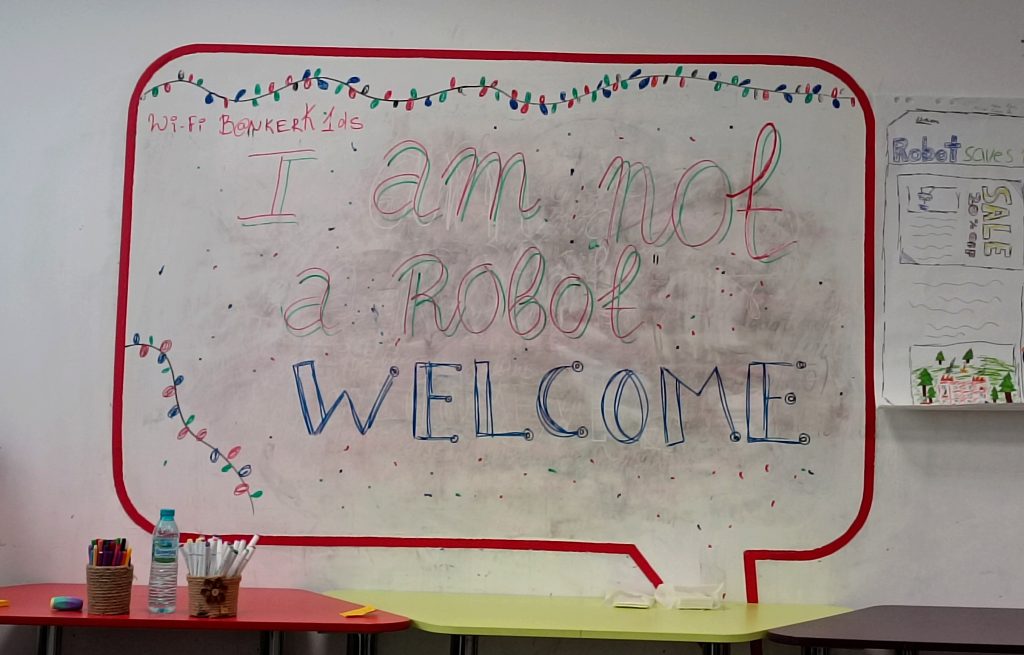 Wi-Fi B@NKERK1ds
I am not
a Robot"
WELCOME
Robot saves
SALE
20% OFF